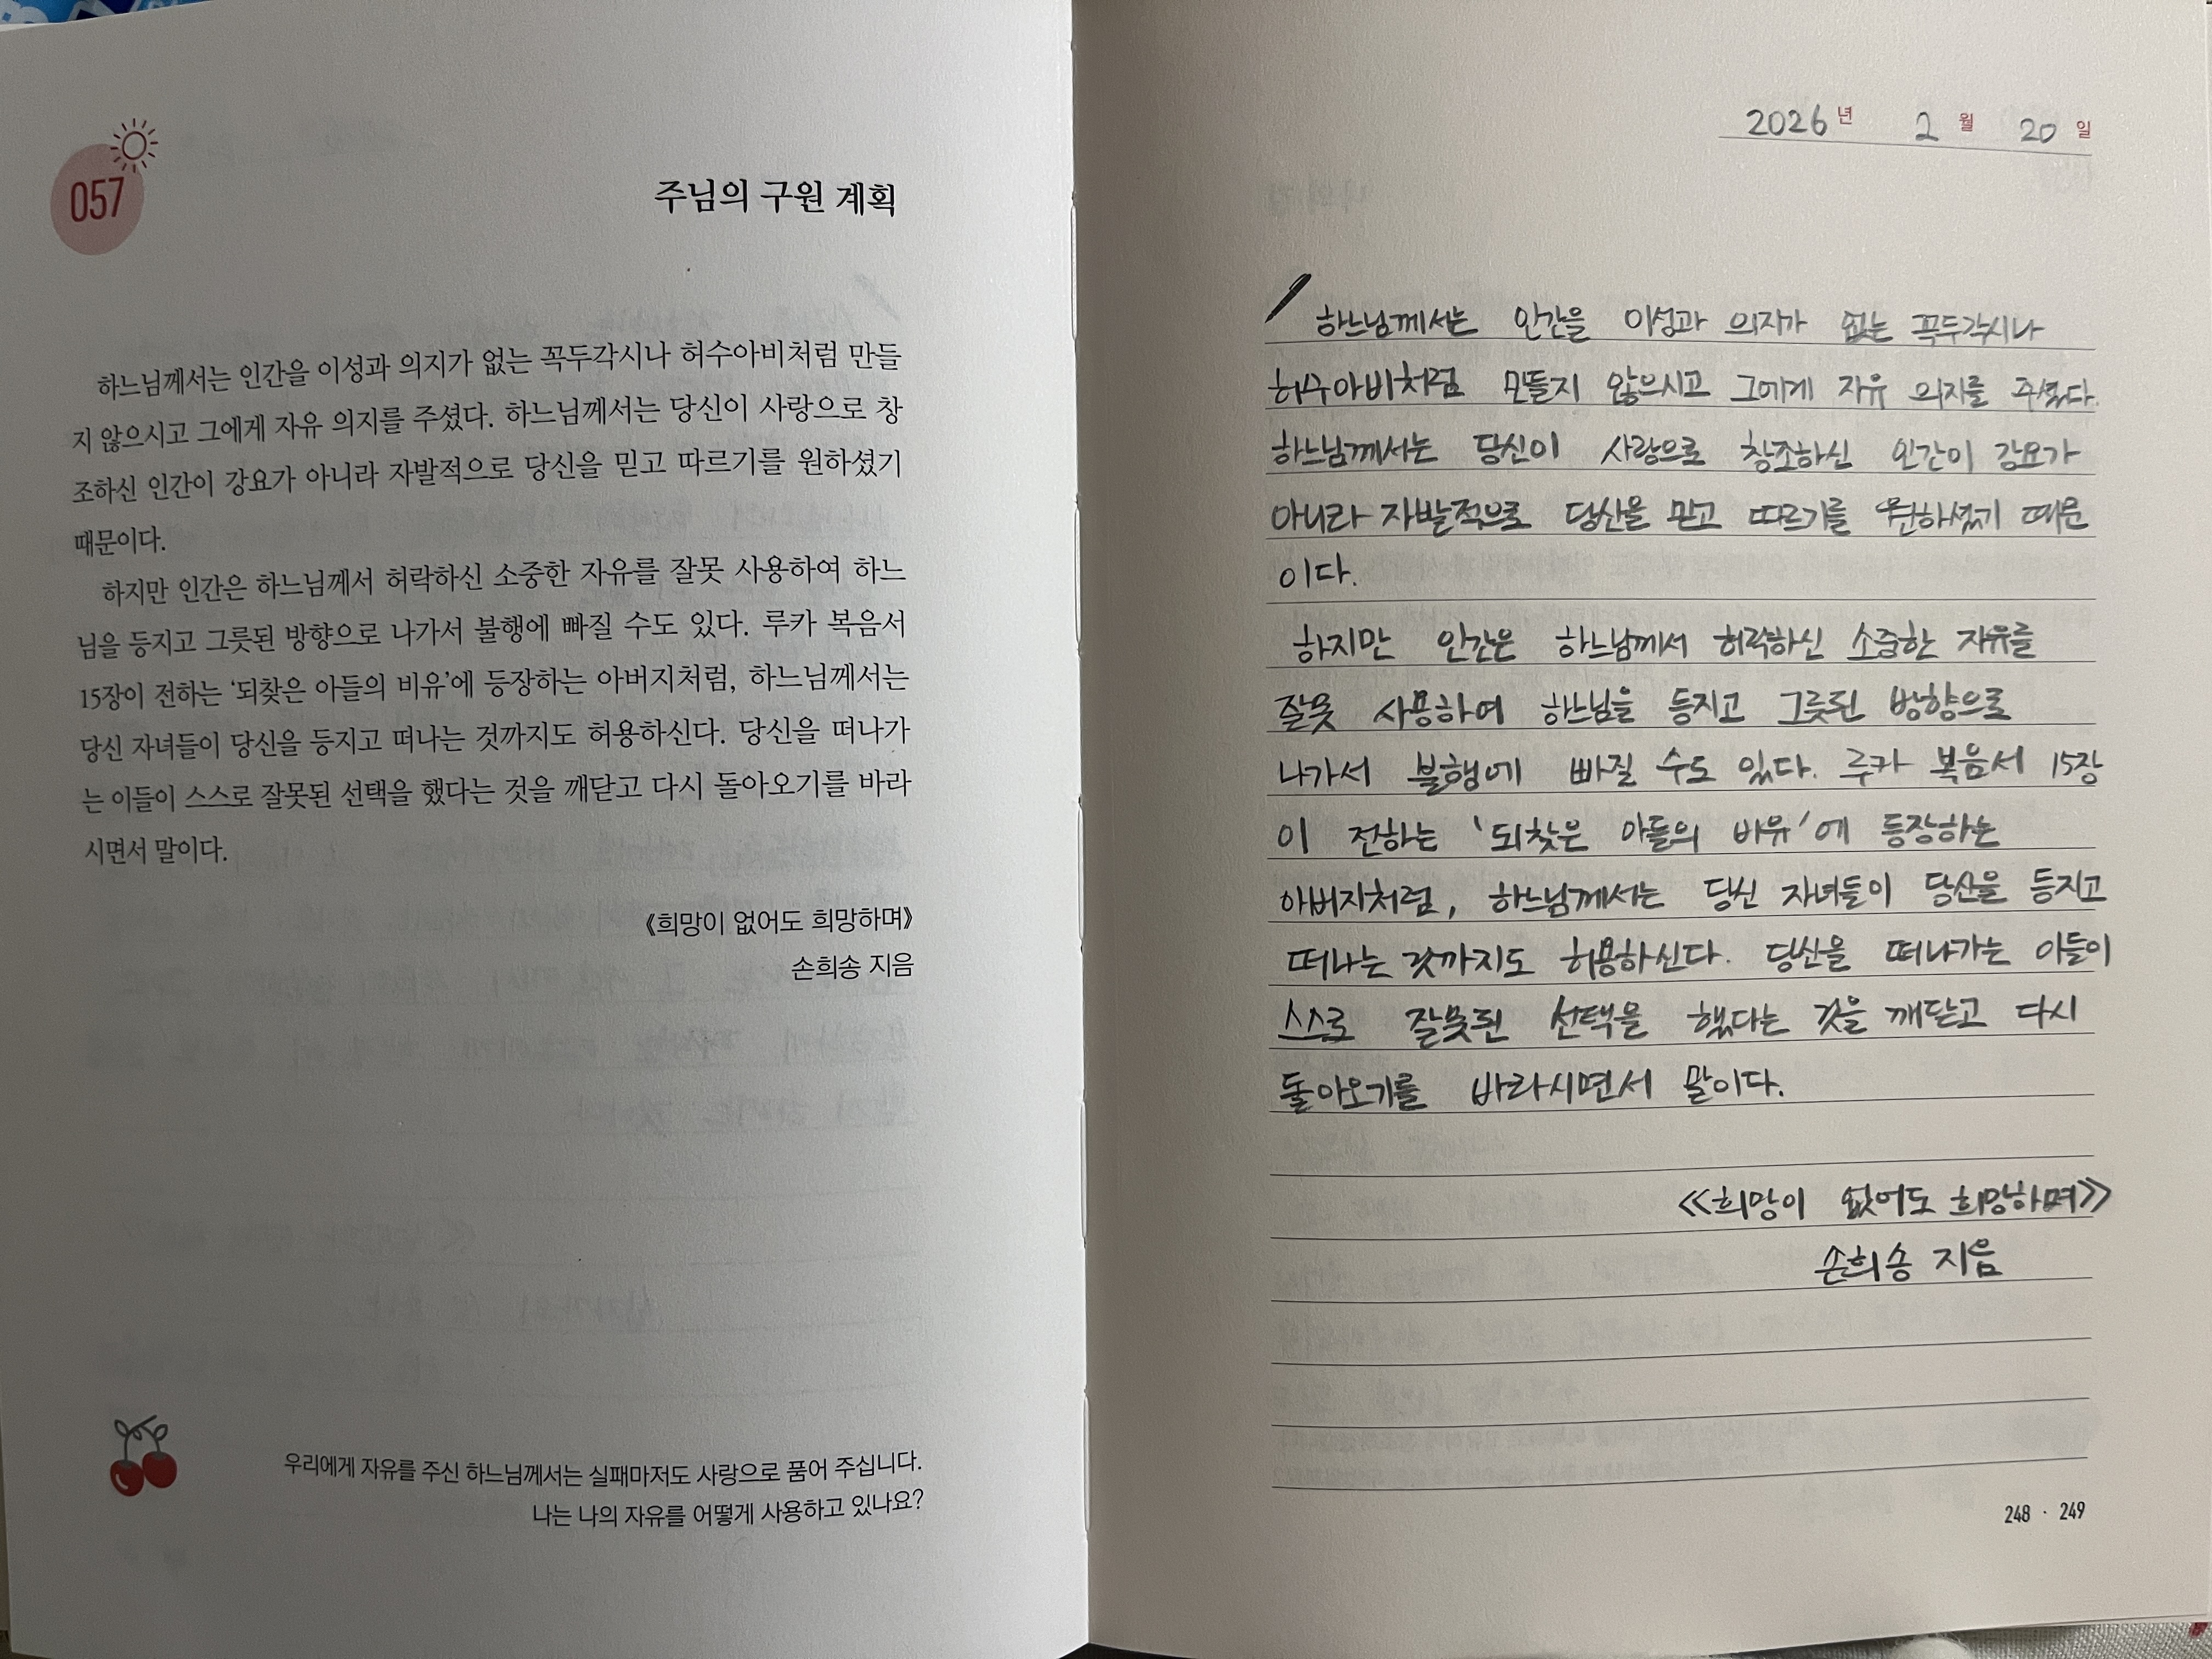 057
주님의 구원 계획
하느님께서는 인간을 이성과 의지가 없는 꼭두각시나 허수아비처럼 만들
지 않으시고 그에게 자유 의지를 주셨다. 하느님께서는 당신이 사랑으로 창
조하신 인간이 강요가 아니라 자발적으로 당신을 믿고 따르기를 원하셨기
때문이다.
하지만 인간은 하느님께서 허락하신 소중한 자유를 잘못 사용하여 하느
님을 등지고 그릇된 방향으로 나가서 불행에 빠질 수도 있다. 루카 복음서
15장이 전하는 ‘되찾은 아들의 비유’에 등장하는 아버지처럼, 하느님께서는
당신 자녀들이 당신을 등지고 떠나는 것까지도 허용하신다. 당신을 떠나가
는 이들이 스스로 잘못된 선택을 했다는 것을 깨닫고 다시 돌아오기를 바라
시면서 말이다.
《희망이 없어도 희망하며》
손희송 지음
우리에게 자유를 주신 하느님께서는 실패마저도 사랑으로 품어 주십니다.
나는 나의 자유를 어떻게 사용하고 있나요?
2026년 2월 20일
하느님께서는 인간을 이성과 의지가 없는 꼭두각시나
허수아비처럼 만들지 않으시고 그에게 자유 의지를 주셨다.
하느님께서는 당신이 사랑으로 창조하신 인간이 강요가
아니라 자발적으로 당신을 믿고 따르기를 원하셨기 때문
이다.
하지만 인간은 하느님께서 허락하신 소중한 자유를
잘못 사용하여 하느님을 등지고 그릇된 방향으로
나가서 불행에 빠질 수도 있다. 루카 복음서 15장
이 전하는 '되찾은 아들의 비유'에 등장하는
아버지처럼, 하느님께서는 당신 자녀들이 당신을 등지고
떠나는 것까지도 허용하신다. 당신을 떠나가는 이들이
스스로 잘못된 선택을 했다는 것을 깨닫고 다시
돌아오기를 바라시면서 말이다.
≪희망이 없어도 희망하며≫
손희송 지음
248 · 249